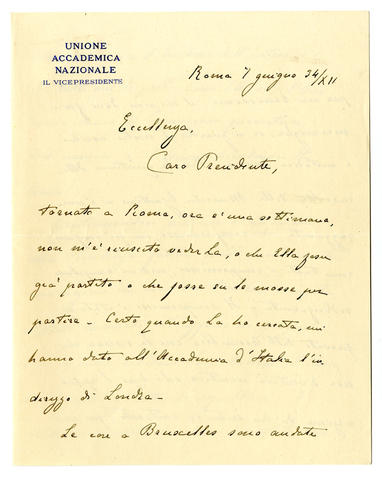 UNIONE
ACCADEMICA
NAZIONALE
IL VICEPRESIDENTE
Roma 7 giugno 34/XII
Eccellenza,
Caro Presidente,
tornato a Roma, ora è una settimana,
non m'è riuscito vederLa, o che Ella fosse
già partito o che fosse su le mosse per
partire - Certo quando La ho cercata, mi
hanno dato all'Accademia d'Italia l'in
dirizzo di Londra -
Le cose a Bruxelles sono andate